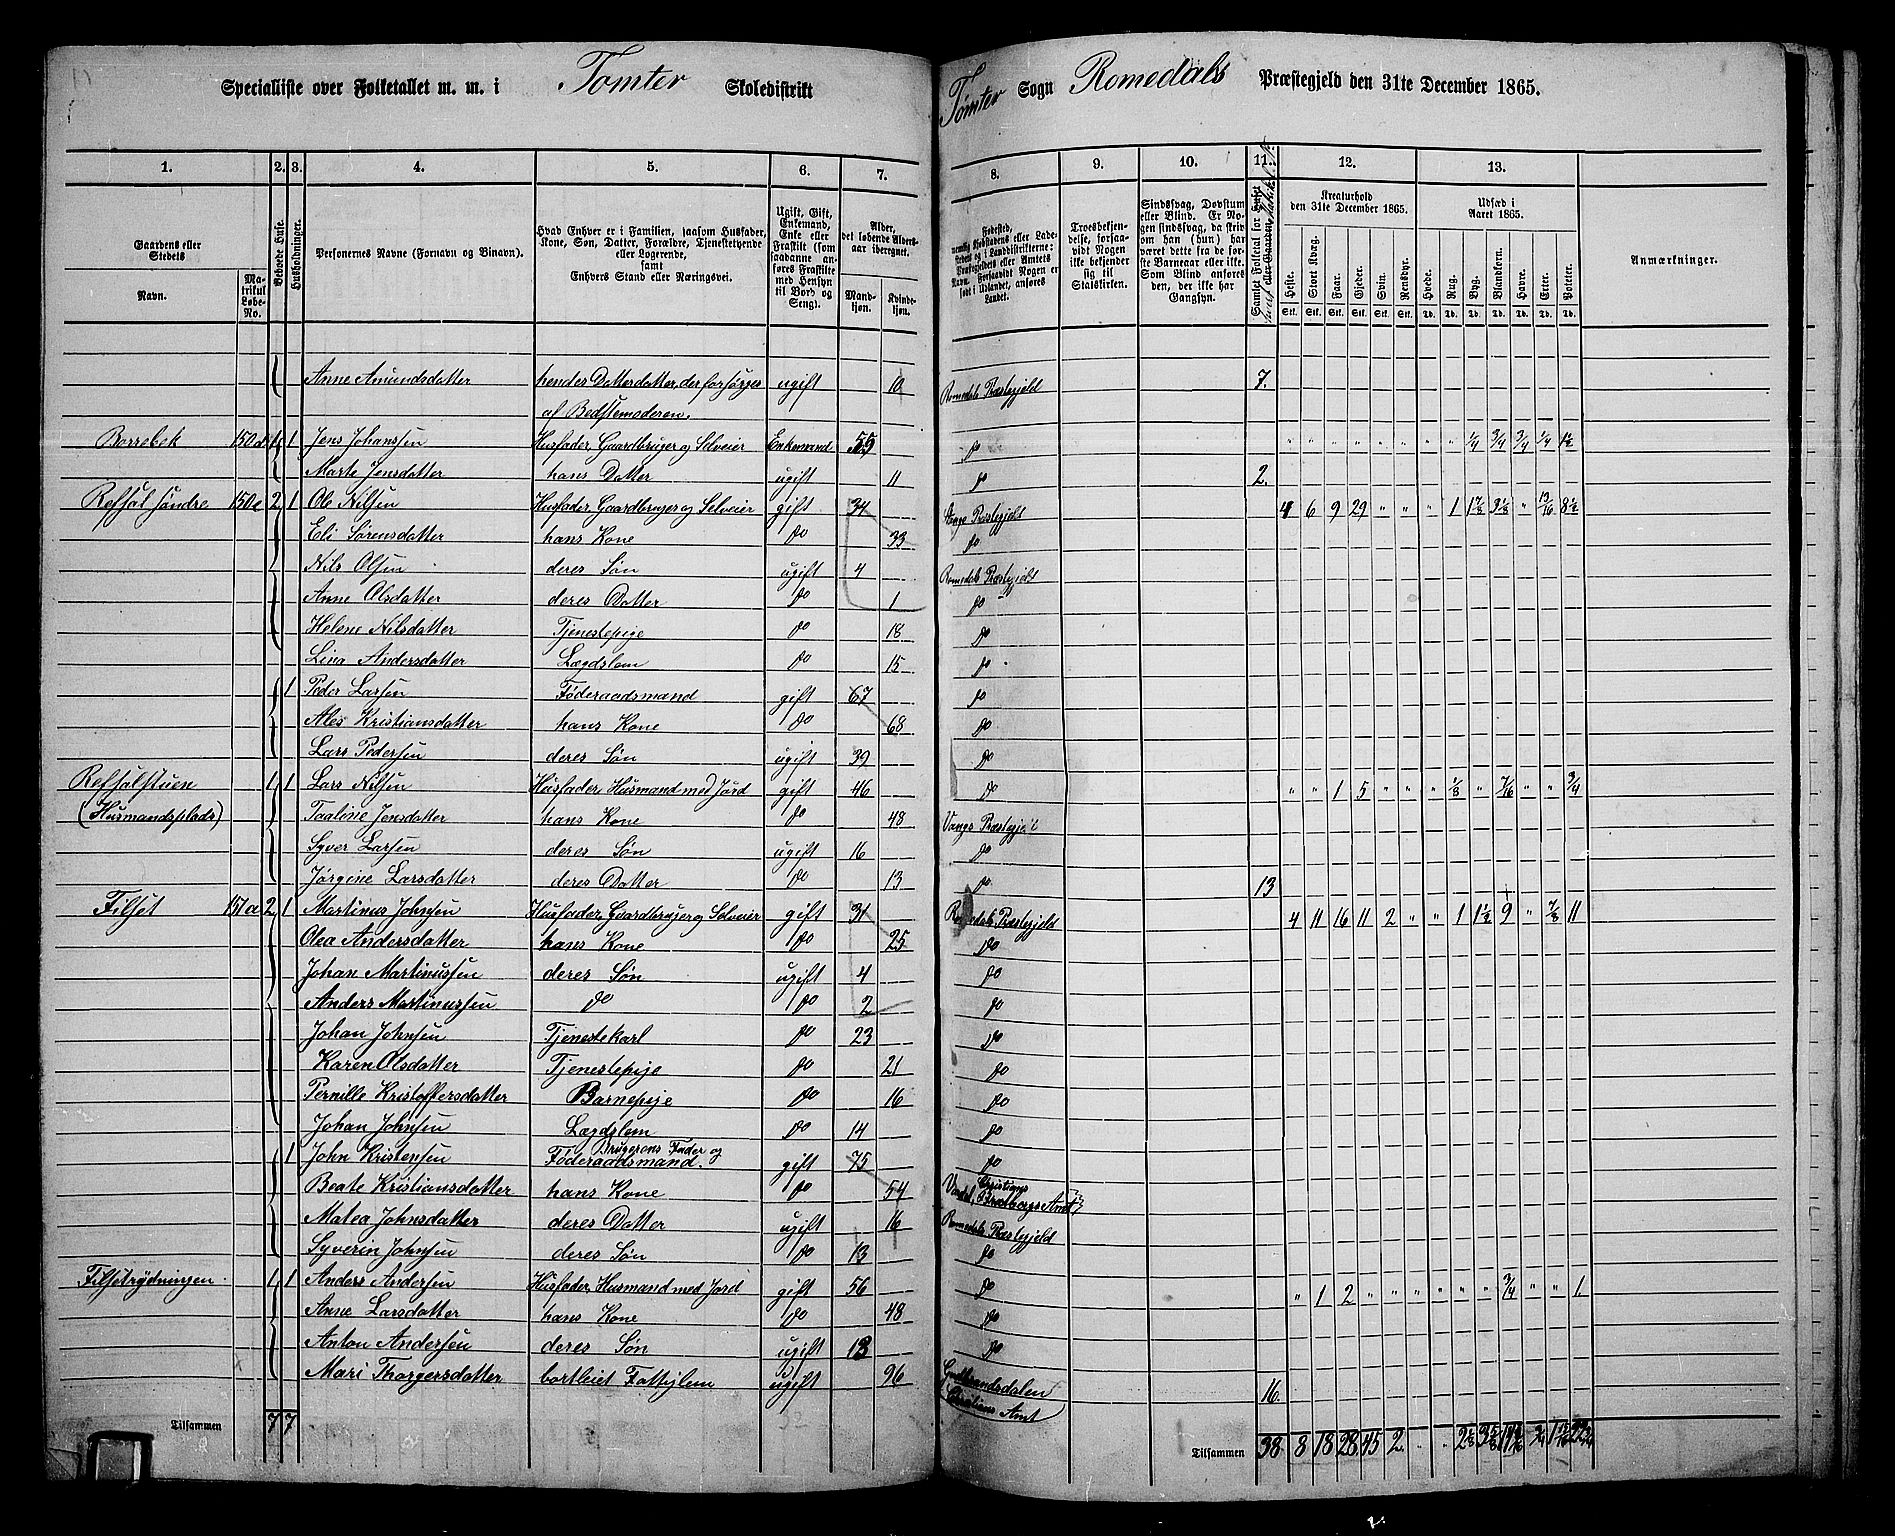 Specialliste over Folketallet m. m. i Tomter Skoledistrikt
Tomter Sogn Romedals Præstegjeld den 31te December 1865.
1. 2. 3. 4. 5. 6. 7. 8. 9. 10. 11. 12. 13.
Gaardens eller Stedets
Navn.
Matrikul Løbe-No.
Beboede Huse.
Husholdninger.
Personernes Navne (Fornavn og Binavn).
Hvad Enhver er i Familien, saasom Husfader, Kone, Søn, Datter, Forældre, Tjenestetyende eller Logerende, samt Enhvers Stand eller Næringsvei.
Ugift, Gift, Enkemand, Enke eller Fraskilt (som saadanne anføres Fraskilte med Hensyn til Bord og Seng).
Alder, det løbende Aldersaar iberegnet.
Mandkjøn. Kvindekjøn.
Troesbekjendelse, forsaavidt Nogen ikke bekjender sig til Statskirken.
Sindssvag, Døvstum eller Blind. Er Nogen sindssvag, da skrives om han (hun) har været dette fra de første Barneaar eller ikke. Som Blind anføres den, der ikke har Gangsyn.
Kreaturhold den 31te December 1865.
Udsæd i Aaret 1865.
Heste. Stort Kvæg. Faar. Gjeder. Svin. Rensdyr. Hvede. Rug. Byg. Blandkorn. Havre. Erter. Poteter.
Stk. Stk. Stk. Stk. Stk. Stk. Td. Td. Td. Td. Td. Td. Td.
Anmærkninger.
Anne Amundsdatter hendes Datterdatter, der forsørges ugift 10 Romedals Præstegjeld 7.
af Bedstemoderen.
Borrebek 1 1 Jens Johansen Husfader, Gaardbruger og Selveier Enkemand 55 do " " " " " " " " 1/4 3/4 3/4 1/4 1 1/2
Marte Jensdatter hans Datter ugift 11 do 2.
Refsøl søndre 2 1 Ole Nilsen Husfader Gaardbruger og Selveier gift 34 Præstegjeld 4 6 9 29 " " " 1
Eli Sørensdatter hans Kone do 33 do
Nils Olsen deres Søn ugift 4 Romedals Præstegjeld
Anne Olsdatter deres Datter do 1 do
Helene Nilsdatter Tjenestepige do 18 do
Lina Andersdatter Lægdslem do 15 do
1 Peder Larsen Føderaadsmand gift 67 do
Ales Kristiansdatter hans Kone do 68 do
Lars Pedersen deres Søn ugift 39 do
Refsølstuen 1 1 Lars Nilsen Husfader, Husmand med Jord gift 46 do " " 1 5 " " " 1/8 " 7/16 " " 3/4
(Husmandsplads) Taaline Jensdatter hans Kone do 48 Vangs Præstegjeld
Syver Larsen deres Søn ugift 16 do
Jørgine Larsdatter deres Datter do 13 do 13
Filset 151a 2 1 Martinus Johnsen Husfader, Gaardbruger og Selveier gift 31 Romedals Præstegjeld 4 11 16 11 2 " " 1 1 1/2 9 " 7/8 11
Olea Andersdatter hans Kone do 25 do
Johan Martinussen deres Søn ugift 4 do
Anders Martinussen do do 2 do
Johan Johnsen Tjenestekarl do 23 do
Karen Olsdatter Tjenestepige do 21 do
Pernille Kristoffersdatter Barnepige do 16 do
Johan Johnsen Lægdslem do 14 do
1 John Kristensen Brugerens Fader og Føderaadsmand. gift 75 do
Beate Kristiansdatter hans Kone do 54 Christians Amt
Matea Johnsdatter deres Datter ugift 16 Romedals Præstegjeld
Syverin Johnsen deres Søn do 13 do
Filsetrydningen 1 1 Anders Andersen Husfader, Husmand med Jord gift 56 do " 1 2 " " " " " " 3/4 " " 1
Anne Larsdatter hans Kone do 48 do
Anton Andersen deres Søn ugift 13 do
Mari Thorgersdatter bortleiet Fattiglem ugift 96 Gudbrandsdalen Christians Amt 16.
Tilsammen 7 7
Tilsammen 38 8 18 28 45 2